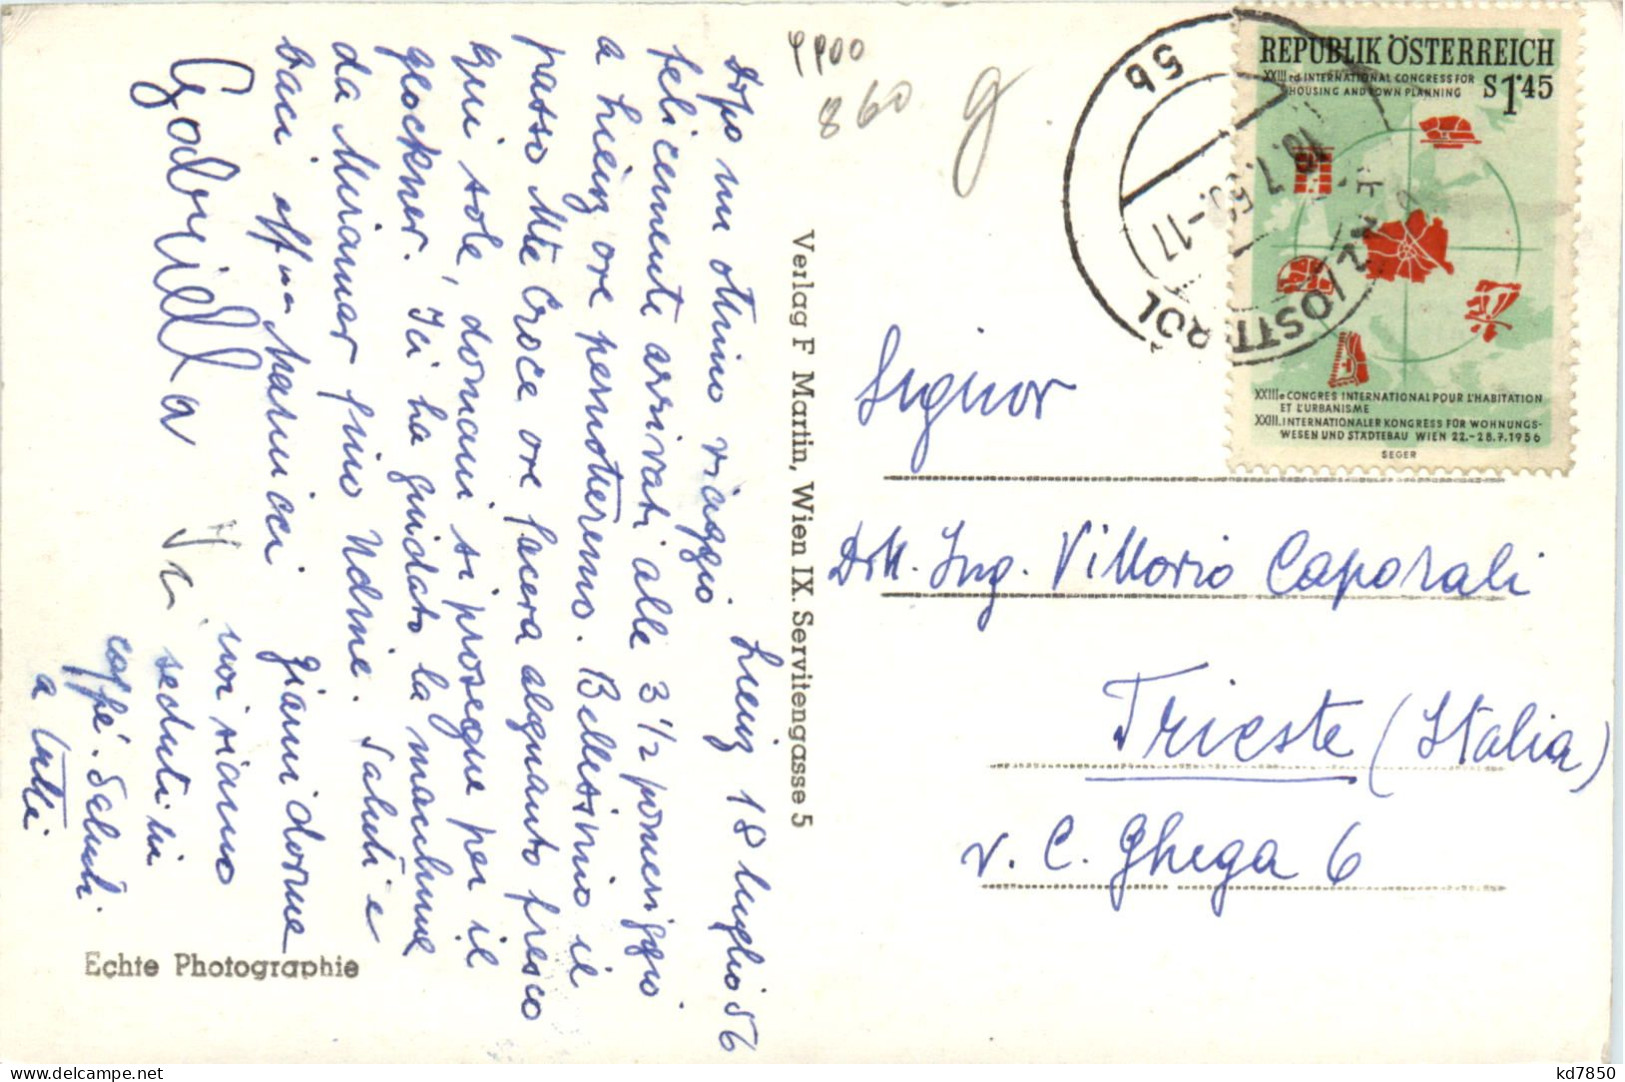 Lienz 18 luglio 56
Dopo un ottimo viaggio
felicemente arrivati alle 3 1/2 pomeriggio
a Lienz ove pernotteremo. Bellissimo il
passo Mte Croce ove faceva alquanto fresco
qui sole, domani si prosegue per il
glockner. Ieri ha guidato la macchina
da Miramar fino Udine. Saluti e
baci aff.mi
Gabriella
Gianni dorme
noi siamo
seduti in
caffè. Saluti
a tutti
Echte Photographie
Verlag F Martin, Wien IX. Servitengasse 5
9900
860
g
56
18.7.56.-17
OSTTIROL
REPUBLIK ÖSTERREICH
XXIIIrd INTERNATIONAL CONGRESS FOR
HOUSING AND TOWN PLANNING
S 1·45
XXIIIe CONGRES INTERNATIONAL POUR L'HABITATION
ET L'URBANISME
XXIII. INTERNATIONALER KONGRESS FÜR WOHNUNGS-
WESEN UND STÄDTEBAU WIEN 22.-28.7.1956
SEGER
Signor
Dott. Ing. Vittorio Caporali
Trieste (Italia)
v. C. Ghega 6
kd7850